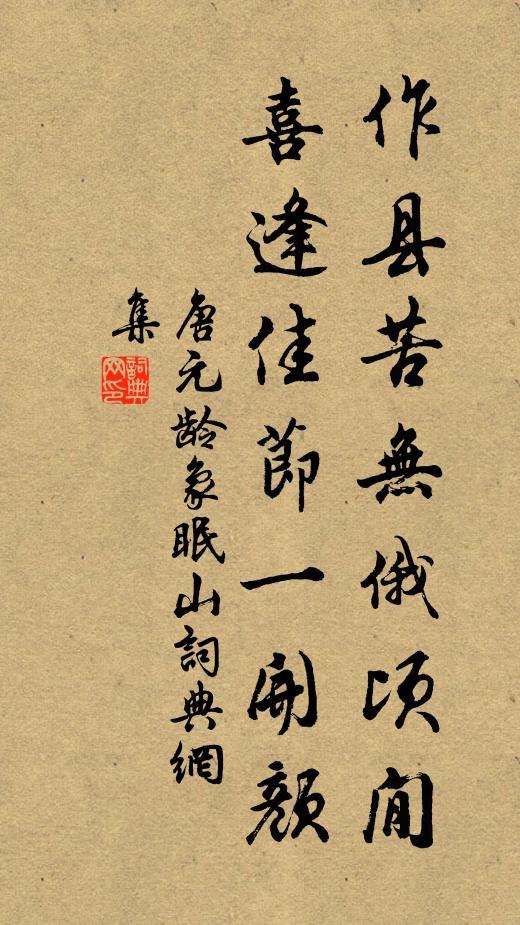 作县苦無俄顷閒
喜逢佳節一開顔
唐元龄象眠山詞典網
集
詞典網印